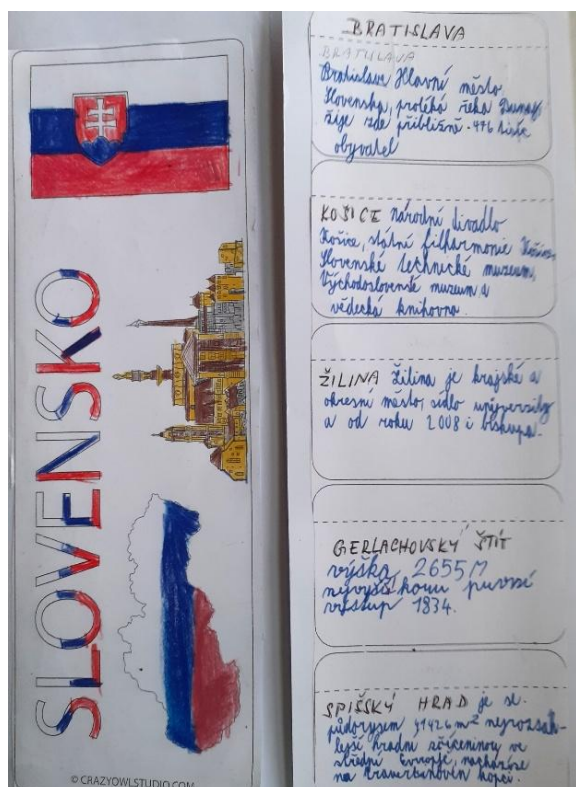 SLOVENSKO
© CRAZYOWLSTUDIO.COM
BRATISLAVA
BRATISLAVA
Bratislava Hlavní město
Slovenska, protéká řeka Dunaj
žije zde přibližně 476 tisíc
obyvatel
KOŠICE národní divadlo
Košice, státní filharmonie Košice,
Slovenské technické muzeum,
Východoslovenské muzeum a
vědecká knihovna.
ŽILINA Žilina je krajské a
okresní město, sídlo univerzity
a od roku 2008 i biskupa.
GERLACHOVSKÝ ŠTÍT
výška 2655 M
nejvyšší horu
výstup 1834.
SPIŠSKÝ HRAD je se
půdorysem 41426 m² nejrozsáh-
lejší hradní zříceninou ve
střední Evropě, nachází se
na travertinovém kopci.